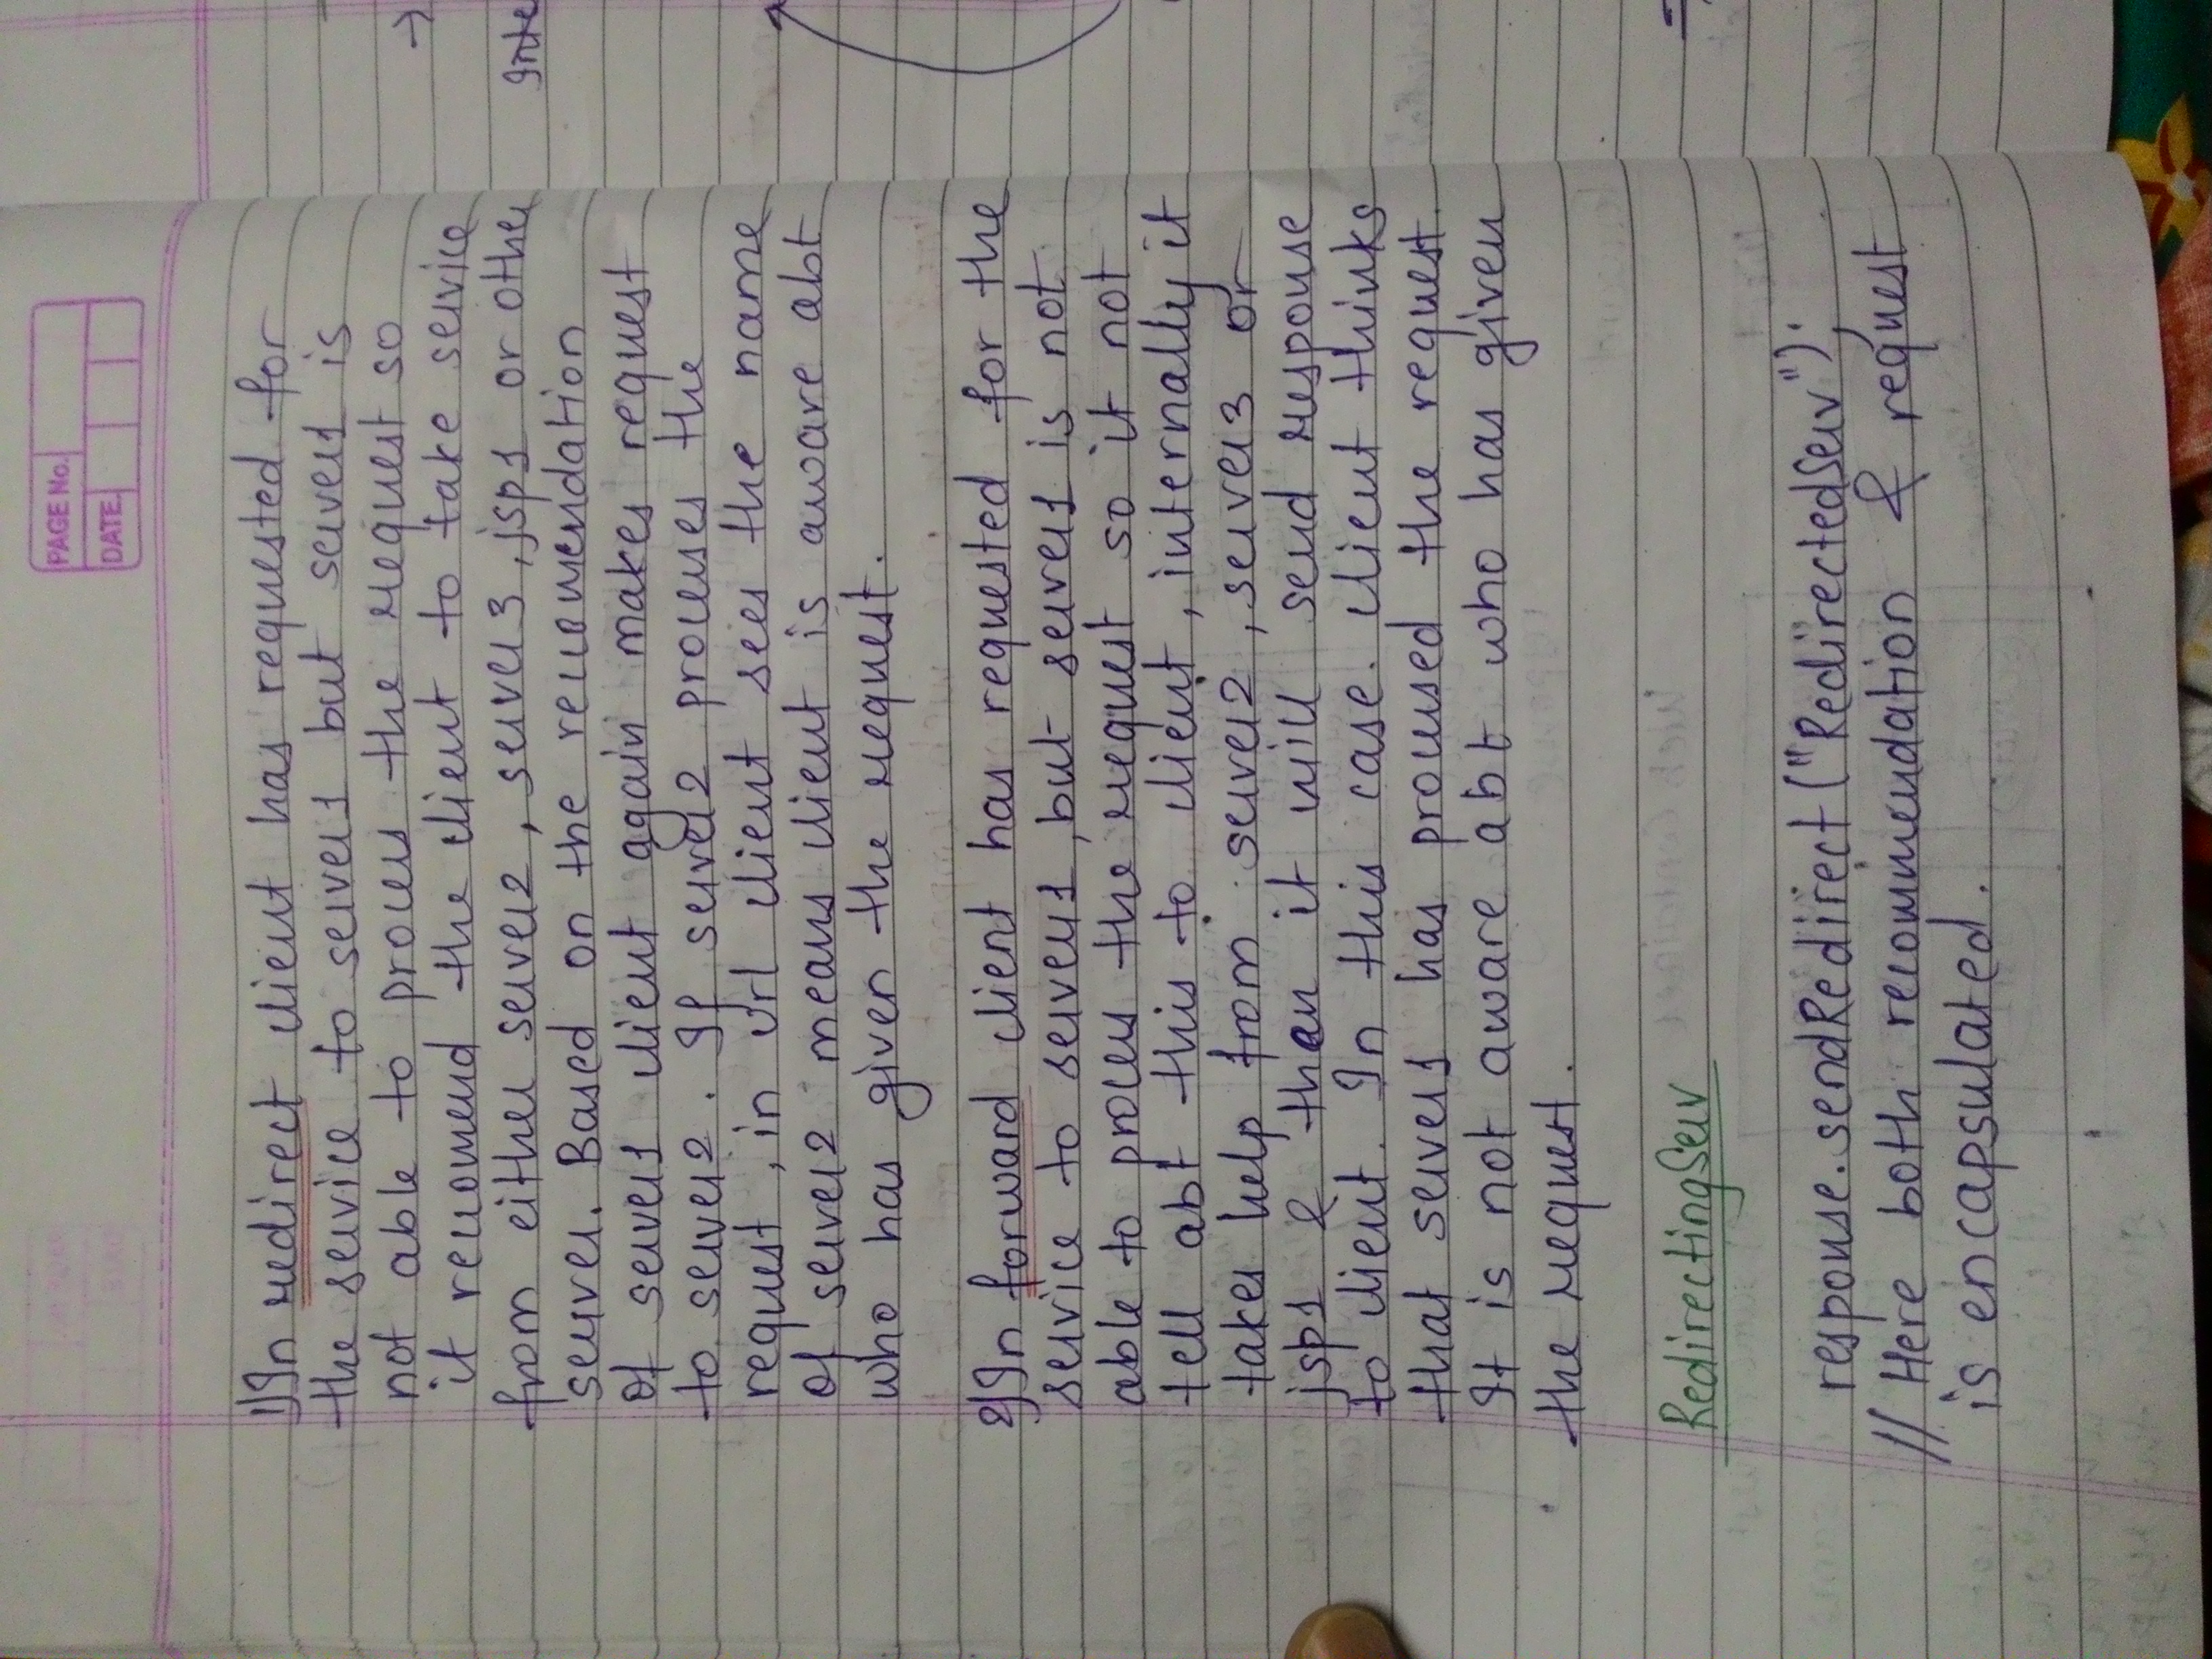 PAGE No.
DATE.
1) In redirect client has requested for
the service to server1 but server1 is
not able to process the request so
it reccomend the client to take service
from either server2, server3, jsp1 or other
server. Based on the reccomendation
of server1 client again makes request
to server2. If server2 processes the
request, in url client sees the name
of server2 means client is aware abt
who has given the request.
2) In forward client has requested for the
service to server1, but server1 is not
able to process the request so it not
tell abt this to client, internally it
takes help from server2, server3 or
jsp1 & then it will send response
to client. In this case. client thinks
that server1 has processed the request.
It is not aware abt who has given
the request.
RedirectingServ
response.sendRedirect("RedirectedServ");
// Here both recommendation & request
is encapsulated.
Inte